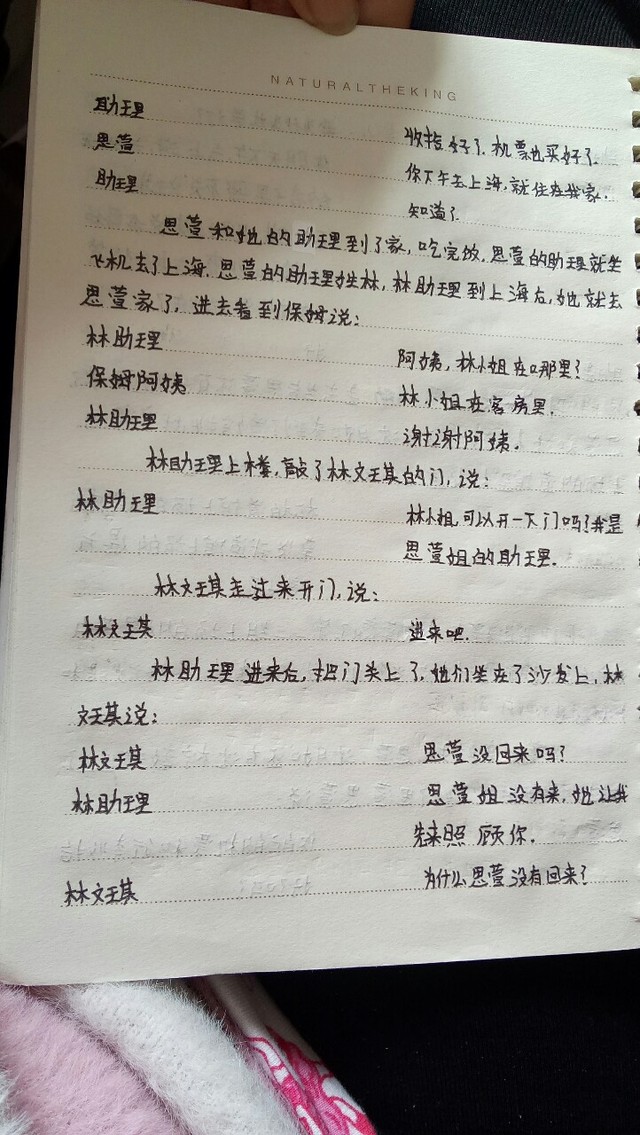 NATURALTHEKING
助理 收拾好了.机票也买好了.
思萱 你下午去上海,就住在我家.
助理 知道了
思萱和她的助理到了家,吃完饭.思萱的助理就坐
飞机去了上海.思萱的助理姓林,林助理到上海后,她就去
思萱家了,进去看到保姆说:
林助理 阿姨,林小姐在哪里?
保姆阿姨 林小姐在客房里.
林助理 谢谢阿姨.
林助理上楼,敲了林文琪的门,说:
林助理 林小姐,可以开一下门吗?我是
思萱姐的助理.
林文琪走过来开门,说:
林文琪 进来吧.
林助理进来后,把门关上了,她们坐在了沙发上,林
文琪说:
林文琪 思萱没回来吗?
林助理 思萱姐没有来,她让我
先来照顾你.
林文琪 为什么思萱没有回来?